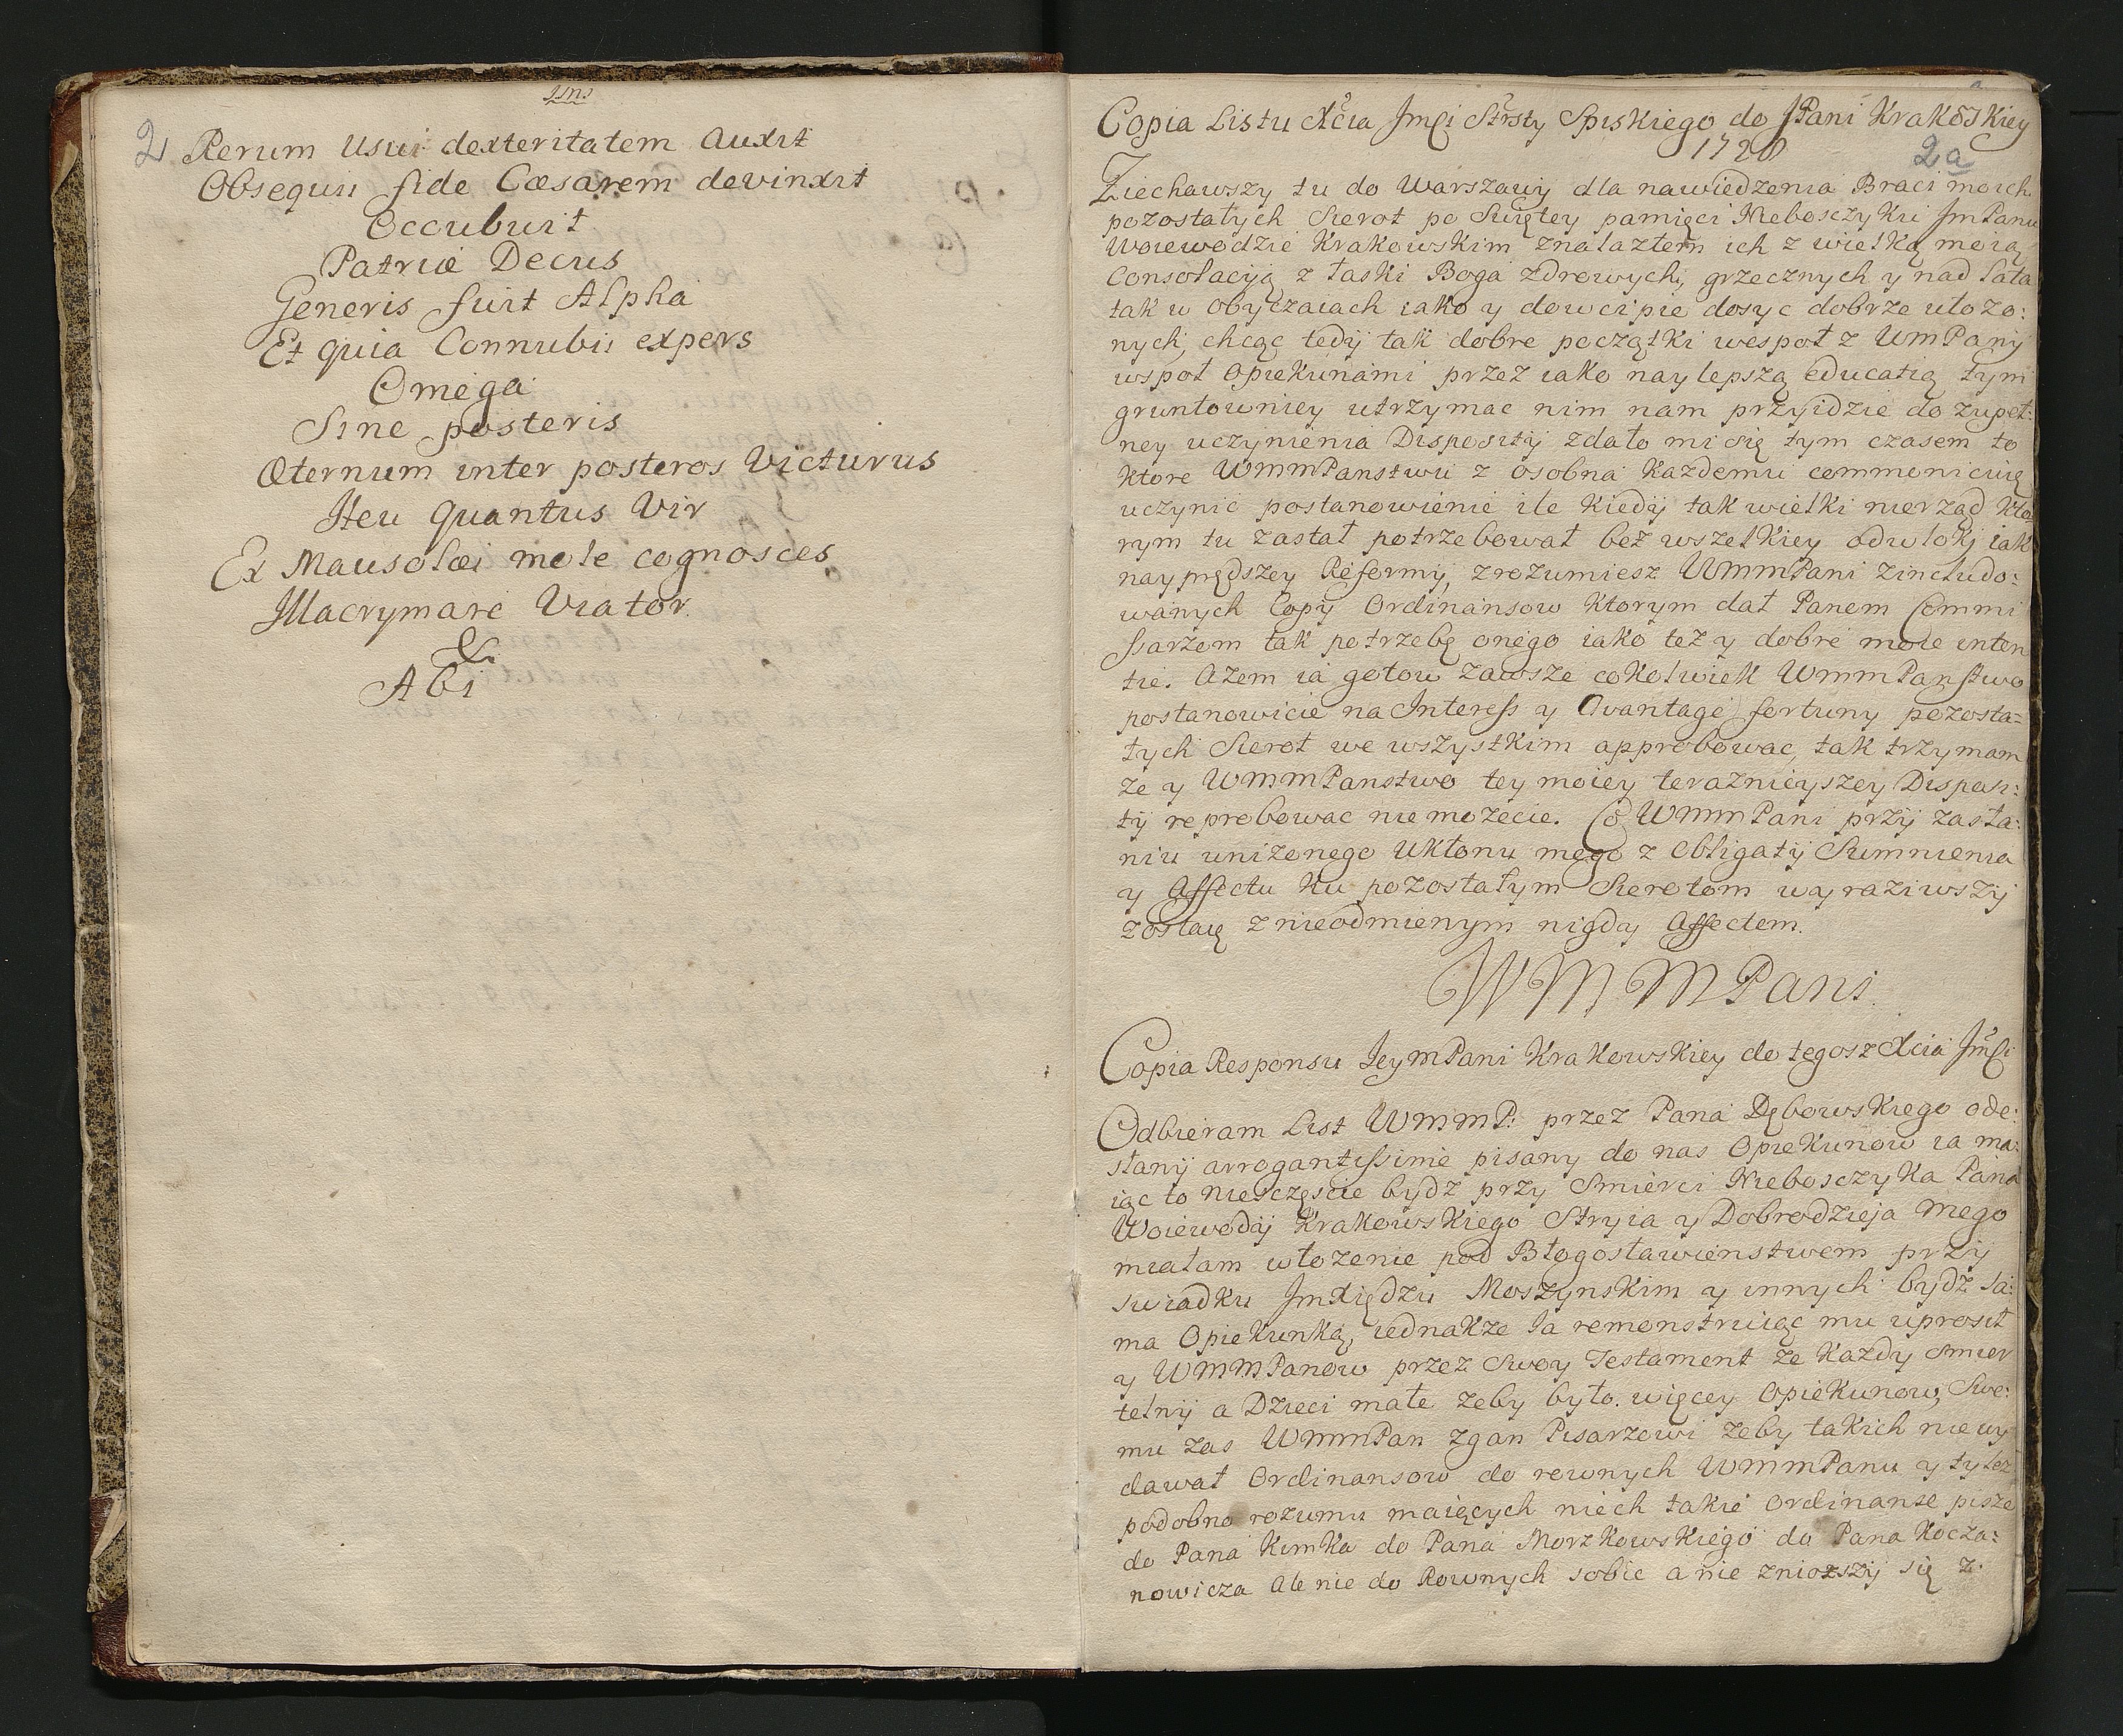 2
Rerum Usui dexteritatem Auxit
Obsequii fide Cæsarem devinxit
Occubuit
Patriæ Decus
Generis fuit Alpha
Et quia Connubii expers
Omega
Sine posteris
Æternum inter posteros Victurus
Heu Quantus Vir
Ex Mausolæi mole cognosces
Illacrymare Viator
&
Abi
Copia Listu Xcia Jmsci Strsty Spiskiego do JPani Krakoskiey
1720
2a
Ziechawszy tu do Warszawÿ dla nawiedzenia Braci moich
pozostałych Sierot po Swiętey pamięci Nieboszczyku Jm Panu
Woiewodzie Krakowskim znalazłem ich z wielką moią
Consolacÿą z łaski Boga zdrowych, grzecznych y nad lata
tak w obyczaiach iako y dowcipie dosyc dobrze ułozo:
nych, chcąc tedÿ tak dobre początki wespoł z Wm Panÿ
wspoł opiekunami przez iako naylepszą educatią tym
gruntowniey utrzymac nim nam przÿidzie do zupeł:
ney uczynienia Dispositÿ zdało mi się tym czasem to
ktore WmmPanstwu z osobna kazdemu commonicuię
uczynic postanowienie ile kiedÿ tak wielki nierząd kto
rym tu zastał potrzebował bez wszelkiey odwłokj iak
nayprędszey Reformÿ, zrozumiesz WmmPani zincludo:
wanych Copÿ Ordinansow ktorym dał Panem Commi
ssarzom tak potrzebę onego iako tez y dobre moie inten
tie. Azem ia gotow zawsze cokolwiek WmmPanstwo
postanowicie na Interess y Avantage fortuny pozosta=
łych Sierot we wszystkim approbowac, tak trzymam
ze y WmmPanstwo tey moiey teraznieyszey Disposi:
tÿ reprobowac nie mozecie. Co WmmPani przÿ zasła:
niu unizonego Ukłonu mego z obligatÿ Sumnienia
y Affectu ku pozostałym Sierotom wyraziwszÿ
zostaię z nieodmienym nigdy Affectem.
WMMPani
Copia Responsu JeymPani Krakowskiey do tegosz Xcia Jmsci
Odbieram List WmmP: przez Pana Dębowskiego ode:
słanÿ arrogantissime pisany do nas Opiekunow ia ma:
iąc to niesczęscie bydz przy Smierci Nieboszczyka Pana
Woiewodÿ Krakowskiego Stryia y Dobrodzieja mego
miałam włozenie pod Błogosławienstwem przÿ
swiadku JmXiędzu Moszynskim y innych bydz sa:
ma Opiekunką, iednakze Ja remonstruiąc mu uprosił
y WmmPanow przez Swoy Testament ze kazdy smier
telnÿ a Dzieci małe zeby było więcey Opiekunow, Swe:
mu zas WmmPan zgan Pisarzowi zeby takich nie wy
dawał Ordinansow do rownych WmmPanu y tylez
podobno rozumu maiących niech takie ordinanse pisze
do Pana Kimka do Pana Morzkowskiego do Pana Kocza:
nowicza Ale nie do Rownych sobie a nie zniozszÿ się z